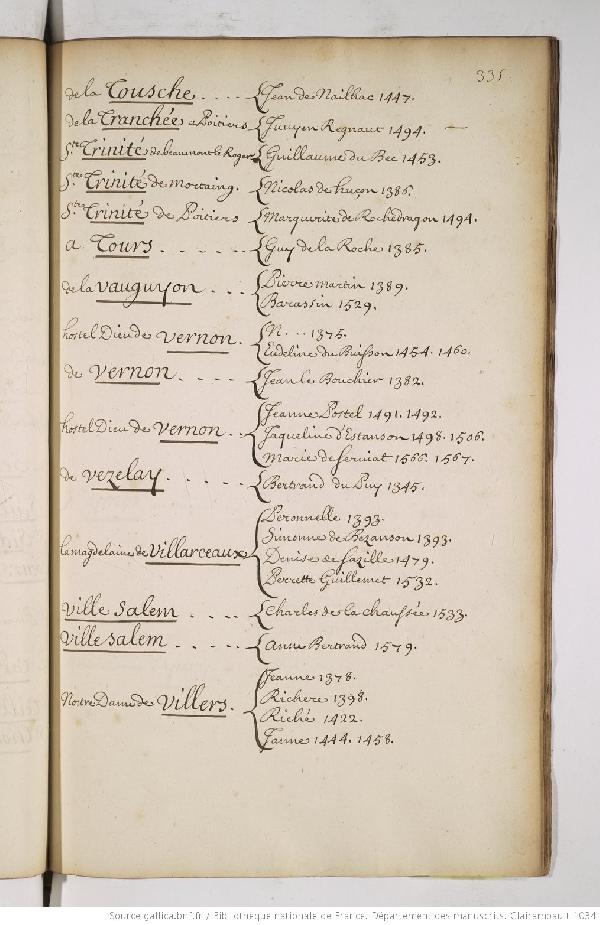 335
de la Tousche . . . . { Jean de Nailhac 1447.
de la Tranchée a Poitiers { Regnaut 1494.
Ste Trinité de beaumont le Roger { Guillaume du Bec 1453.
Ste Trinité de mortaing. { Nicolas de 1386.
Ste Trinité de Poitiers { Marguerite de Rochedragon 1494.
a Tours . . . . { Guy de la Roche 1385.
de la vauguyon . . . { Pierre martin 1389.
Barassin 1529.
hostel Dieu de vernon. { N. . . 1375.
Eudeline du Buisson 1454. 1460.
de vernon . . . . { Jean le Bouchier 1382.
hostel Dieu de vernon . . { Jeanne Postel 1491. 1492.
Jaqueline d'Estanson 1498. 1506.
Marie de 1566. 1567.
de vezelay . . . . { Bertrand du Puy 1345.
la magdelaine de villarceaux { Peronnelle 1393.
Simonne de Bezanson 1393.
Denise de 1479.
Perrette Guillemet 1532.
ville salem . . . . { Charles de la chaussée 1533.
ville salem . . . . { Anne Bertrand 1579.
Nostre Dame de villers. { Jeanne 1378.
Richere 1398.
Riché 1422.
Janne 1444. 1458.
Source gallica.bnf.fr / Bibliothèque nationale de France. Département des manuscrits. Clairambault 1034